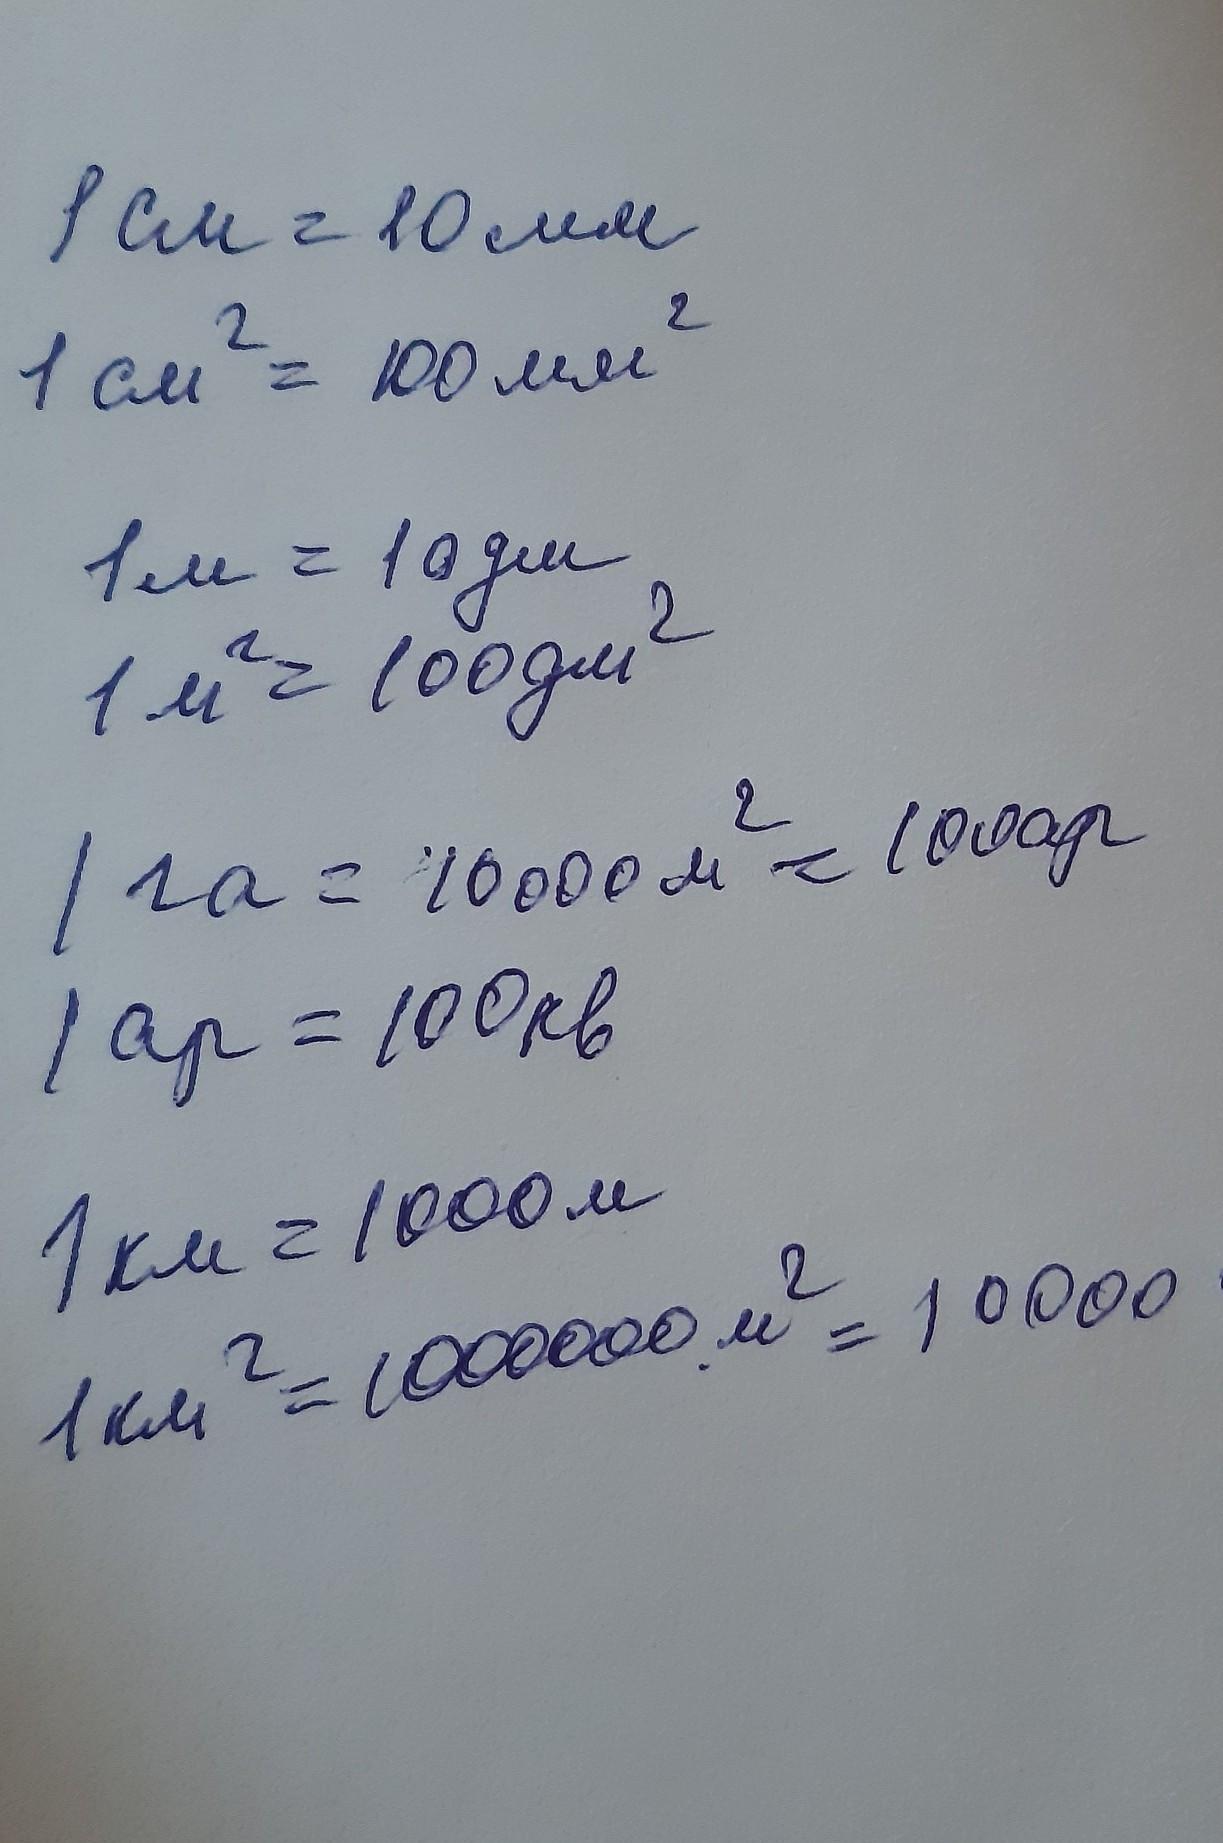 1 см = 10 мм
1 см² = 100 мм²
1 м = 10 дм
1 м² = 100 дм²
1 га = 10000 м² = 100 ар
1 ар = 100 кв
1 км = 1000 м
1 км² = 1000000 м² = 10000